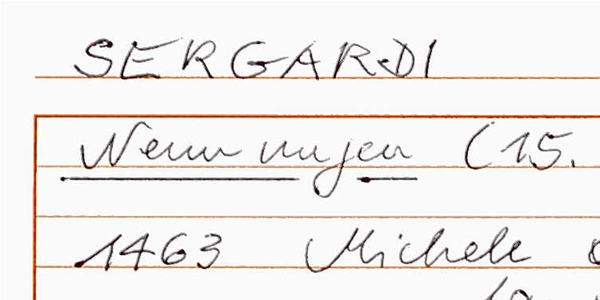 SERGARDI
Nennungen (15.
1463 Michele